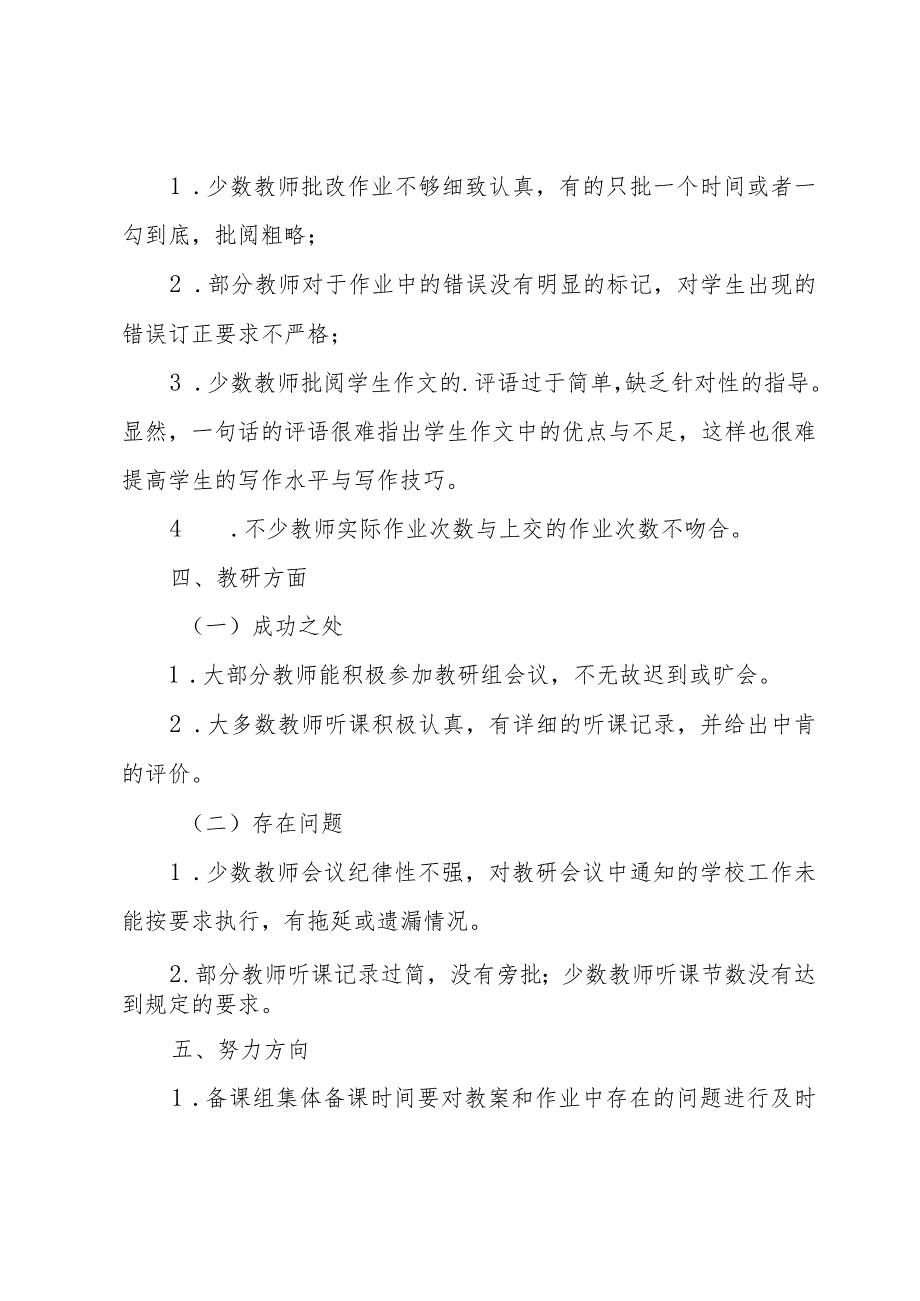 1 .少数教师批改作业不够细致认真，有的只批一个时间或者一
勾到底，批阅粗略；
2 .部分教师对于作业中的错误没有明显的标记，对学生出现的
错误订正要求不严格；
3 .少数教师批阅学生作文的.评语过于简单,缺乏针对性的指导。
显然，一句话的评语很难指出学生作文中的优点与不足，这样也很难
提高学生的写作水平与写作技巧。
4 .不少教师实际作业次数与上交的作业次数不吻合。
四、教研方面
（一）成功之处
1 .大部分教师能积极参加教研组会议，不无故迟到或旷会。
2 .大多数教师听课积极认真，有详细的听课记录，并给出中肯
的评价。
（二）存在问题
1 .少数教师会议纪律性不强，对教研会议中通知的学校工作未
能按要求执行，有拖延或遗漏情况。
2.部分教师听课记录过简，没有旁批；少数教师听课节数没有达
到规定的要求。
五、努力方向
1 .备课组集体备课时间要对教案和作业中存在的问题进行及时